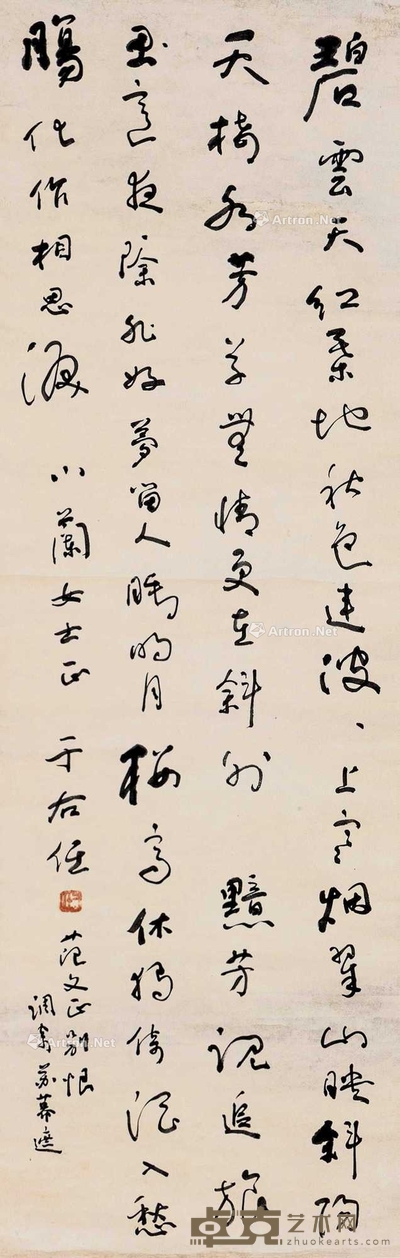 碧雲天紅葉地秋色連波、上寒烟翠山映斜陽
天接水芳草無情更在斜外 黯芳魂追旅
思寒夜除非好夢留人睡明月樓高休獨倚酒入愁
腸化作相思淚 小蘭女士正 于右任
范文正別恨
調寄蘇幕遮
Artron.Net
Artron.Net
Artron.Net
Artron.Net
卓克艺术网
zhuokearts.com